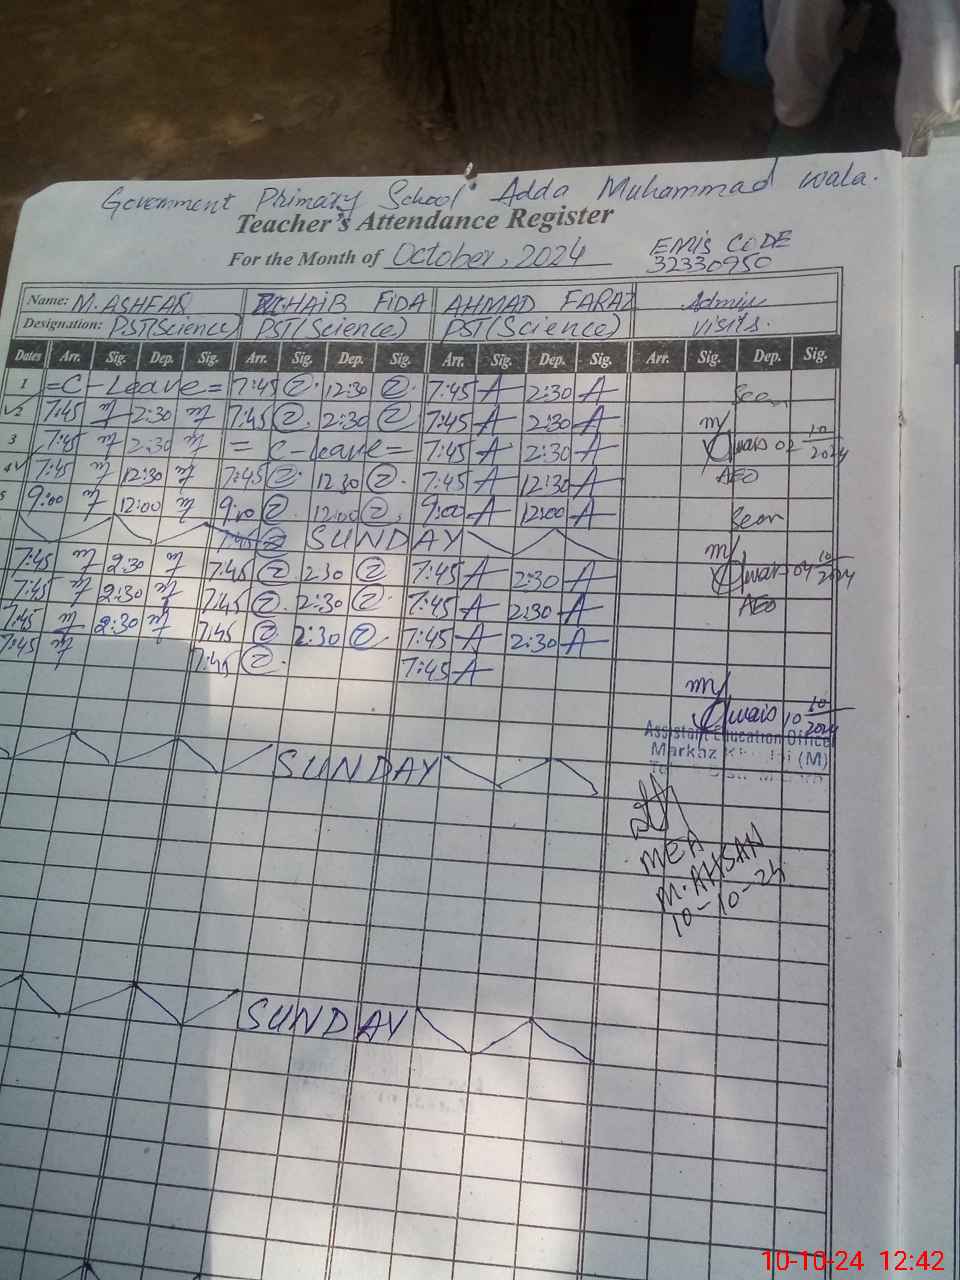 Government Primary School Adda Muhammad wala.
Teacher's Attendance Register
For the Month of October, 2024
EMIS CODE
32330950
Name: M. ASHFAQ ZUHAIB FIDA AHMAD FARAZ Admin
Designation: PST(Science) PST(Science) PST(Science) visits.
Dates Arr. Sig. Dep. Sig. Arr. Sig. Dep. Sig. Arr. Sig. Dep. Sig. Arr. Sig. Dep. Sig.
1 =C-Leave= 7:45 12:30 7:45 A 2:30 A Seen
2 7:45 2:30 7:45 2:30 7:45 A 2:30 A
3 7:45 2:30 =C-leave= 7:45 A 2:30 A Owais 02 10/2024
4 7:45 12:30 7:45 12:30 7:45 A 12:30 A AEO
5 9:00 12:00 9:00 12:00 9:00 A 12:00 A Seen
SUNDAY
7:45 2:30 7:45 2:30 7:45 A 2:30 A Owais 04 10/2024
7:45 2:30 7:45 2:30 7:45 A 2:30 A AEO
7:45 2:30 7:45 2:30 7:45 A 2:30 A
7:45 7:45 7:45 A
Owais 10 10/2024
Assistant Education Officer
Markaz (M)
SUNDAY
MEA
M. AHSAN
10-10-24
SUNDAY
10-10-24 12:42